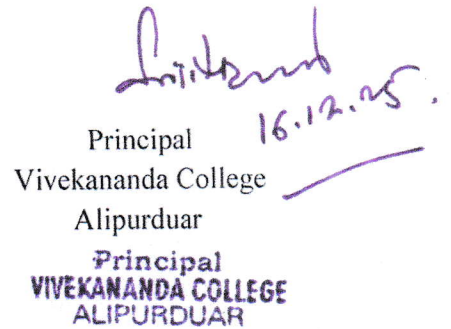 16.12.25.
Principal
Vivekananda College
Alipurduar
Principal
VIVEKANANDA COLLEGE
ALIPURDUAR